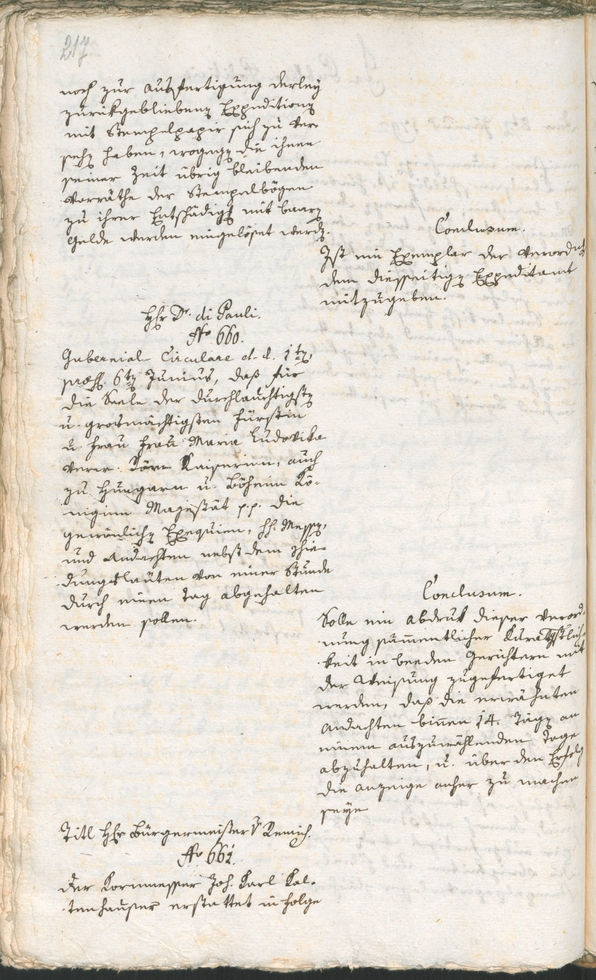 217
noch zur Ausfertigung derley
zurükgebliebenen Expeditionen
mit Stempelpapier sich zu ver-
sehen haben, wogegen die ihnen
seiner Zeit übrig bleibenden
Vorräthe der Stempelbögen
zu ihrer Entschädigg mit baaren
Gelde werden eingelöset werden.
Conclusum.
Ist ein Exemplar der Verordng
dem diesseitigen Expeditamt
mitzugeben.
Hr Dr. di Pauli.
No 660.
Gubernial Circulare d. d. 1ten
praes. 6ten Junius, daß für
die Seele der durchlauchtigsten
u. grosmächtigsten Fürstin
u. Frau Frau Maria Ludovika
Röm. Kaiserinn, auch
zu Hungarn u. Böheim Kö-
niginn Majestät p. p. die
gewönlichen Exequien, hh. Messen,
und Andachten nebst dem
läuten von einer Stunde
durch einen Tag abgehalten
werden sollen.
Conclusum.
Solle ein Abdruk dieser Verord-
nung sämmentlicher Kuratgeistlich-
keit in beeden Gerichtern mit
der Weisung zugefertiget
werden, daß die erwähnten
Andachten binnen 14. Tagen an
einem auszuwählenden Tage
abzuhalten, u. über den Erfolg
die Anzeige anher zu machen
seye
Titl Hr Bürgermeister v Remich.
No 661.
Der Kornmesser Joh. Karl Kal-
tenhauser erstattet in Folge